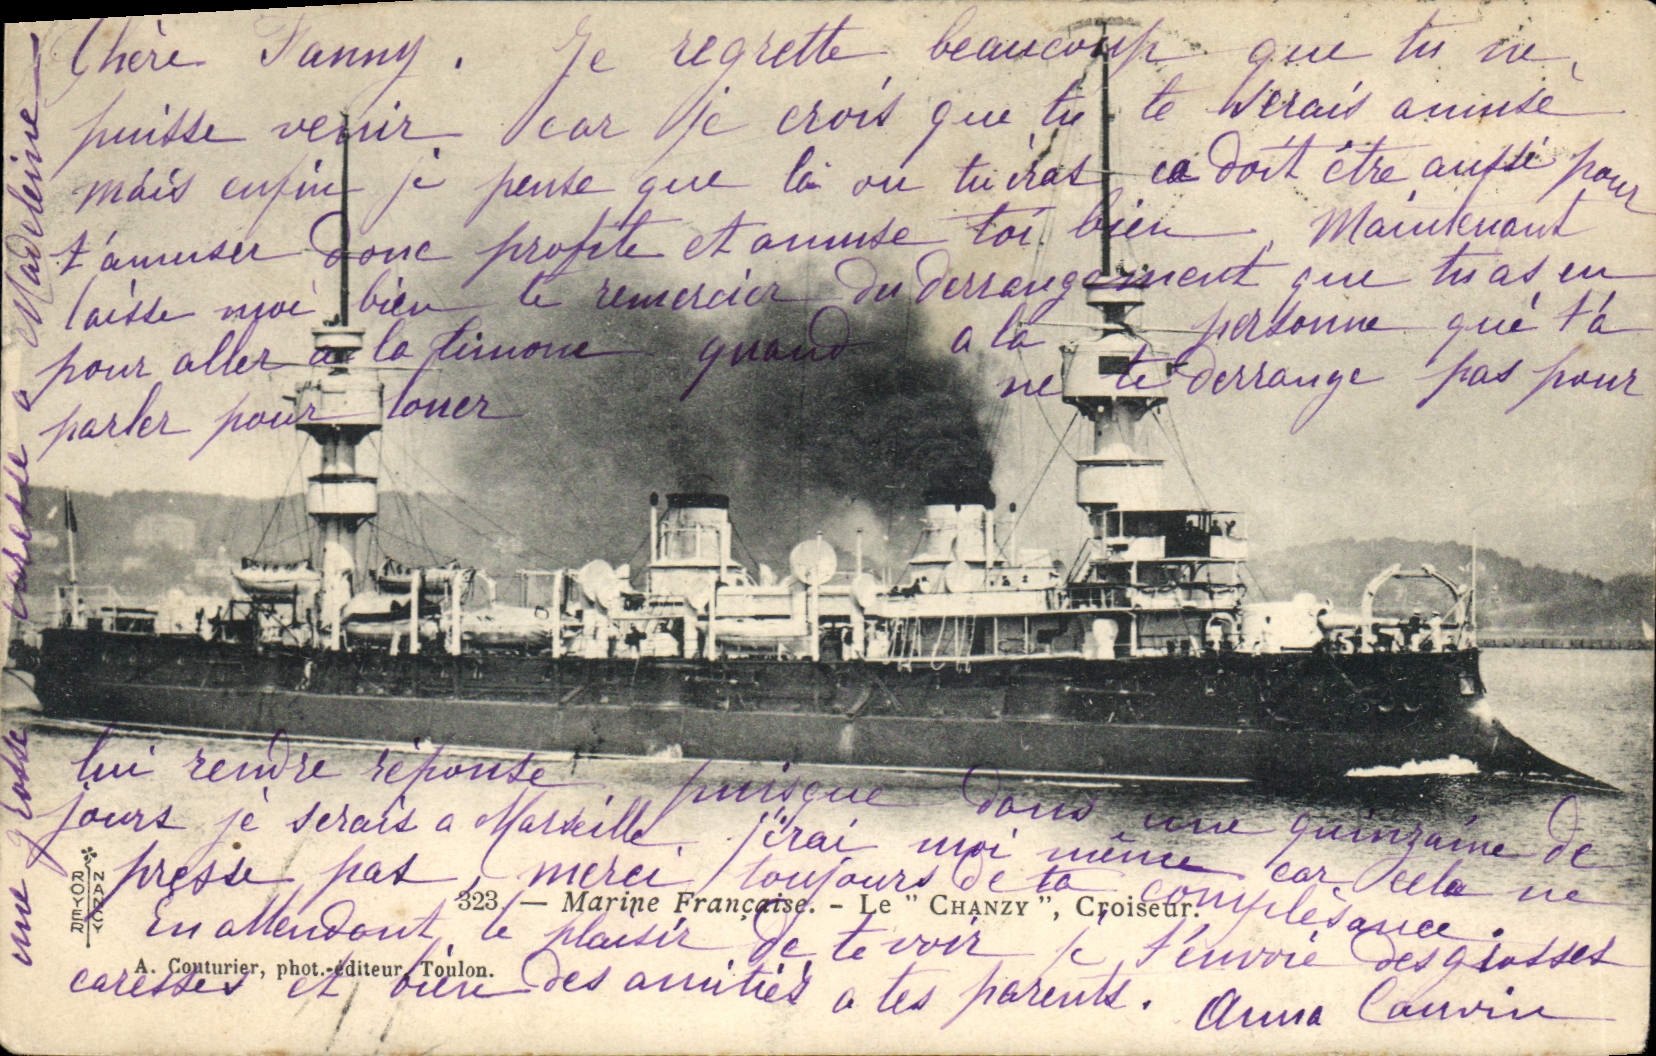 Chère Fanny. Je regrette beaucoup que tu ne
puisse venir car je crois que tu te serais amusé
mais enfin je pense que là ou tu iras ca doit être aussi pour
t'amuser donc profite et amuse toi bien. Maintenant
laisse moi bien te remercier du derrangement que tu as eu
pour aller a la Timone quand a la personne qui t'a
parler pour louer ne te derrange pas pour
lui rendre réponse puisque dans une quinzaine de
jours je serais a Marseille j'irai moi même car cela ne
presse pas, merci toujours de ta complésance.
En attendant le plaisir de te voir je t'envoie des grosses
caresses et bien des amitiés a tes parents. Anna Cauvin
une grosse caresse a Madeleine
ROYER NANCY
323. — Marine Française. - Le " CHANZY ", Croiseur.
A. Couturier, phot.-éditeur, Toulon.